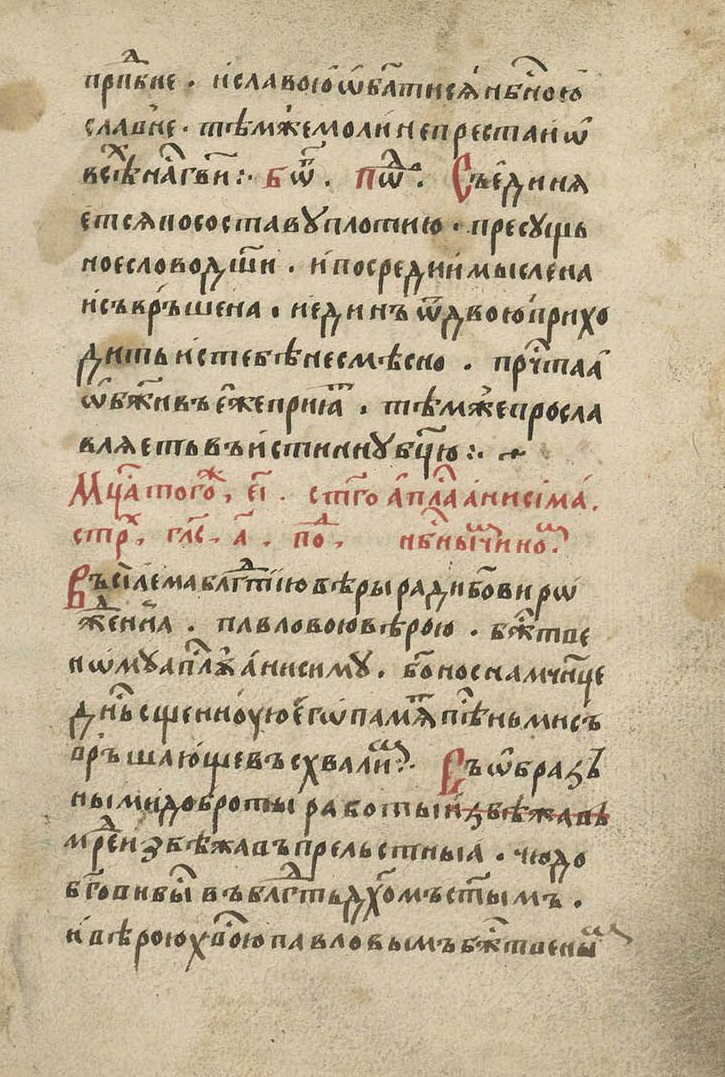 прпⷣбне · и славою ѡбл҃тисѧ и бж҃ною
славне · тѣмже моли непрестаи ѡ
всѣⷯ наⷭ҇ гви҃ :· бѡⷢ҇ · пѡⷣ · Съединѧ
етсѧ по съставꙋ плотию · пресꙋщь
ное слово дш҃и · и посредии мыслена
и съврьшена · и единъ ѿ двою прихо
дить и с тебѣ несмѣсно · прⷱ҇таа
ѡбжи҃въ еже приꙗⷮ · тѣмже просла
влѧеть въ истиннꙋ бц҃ю :·
Мцⷭ҇а тогоⷤ, еі · ст҃го апⷭ҇ла анисіма ·
стрⷯ, глⷭ҇, а · поⷣ · нбⷭ҇ныⷨ чиноⷨ ·
Въсілема блгⷣтію вѣры ради бг҃ови рѡ
жⷣенна · павловою вѣрою · бжⷭ҇тве
нѡмꙋ апⷭ҇лꙋ анисимꙋ · бг҃оносна мчн҃це
днⷭ҇ь сщенноую егѡ памѧⷮ пѣⷭ҇ньми съ
врьшающе въсхвалиⷨ · Съѡбраꙁ
ными доброты работыи ꙁбѣжавъ
мрⷣеи збѣжавъ прельстныа · чюдо
бг҃овивыи въ блгⷣть дх҃омъ ст҃ымъ ·
и вѣрою хв҃ою павловымъ бжⷭ҇твеныⷨ